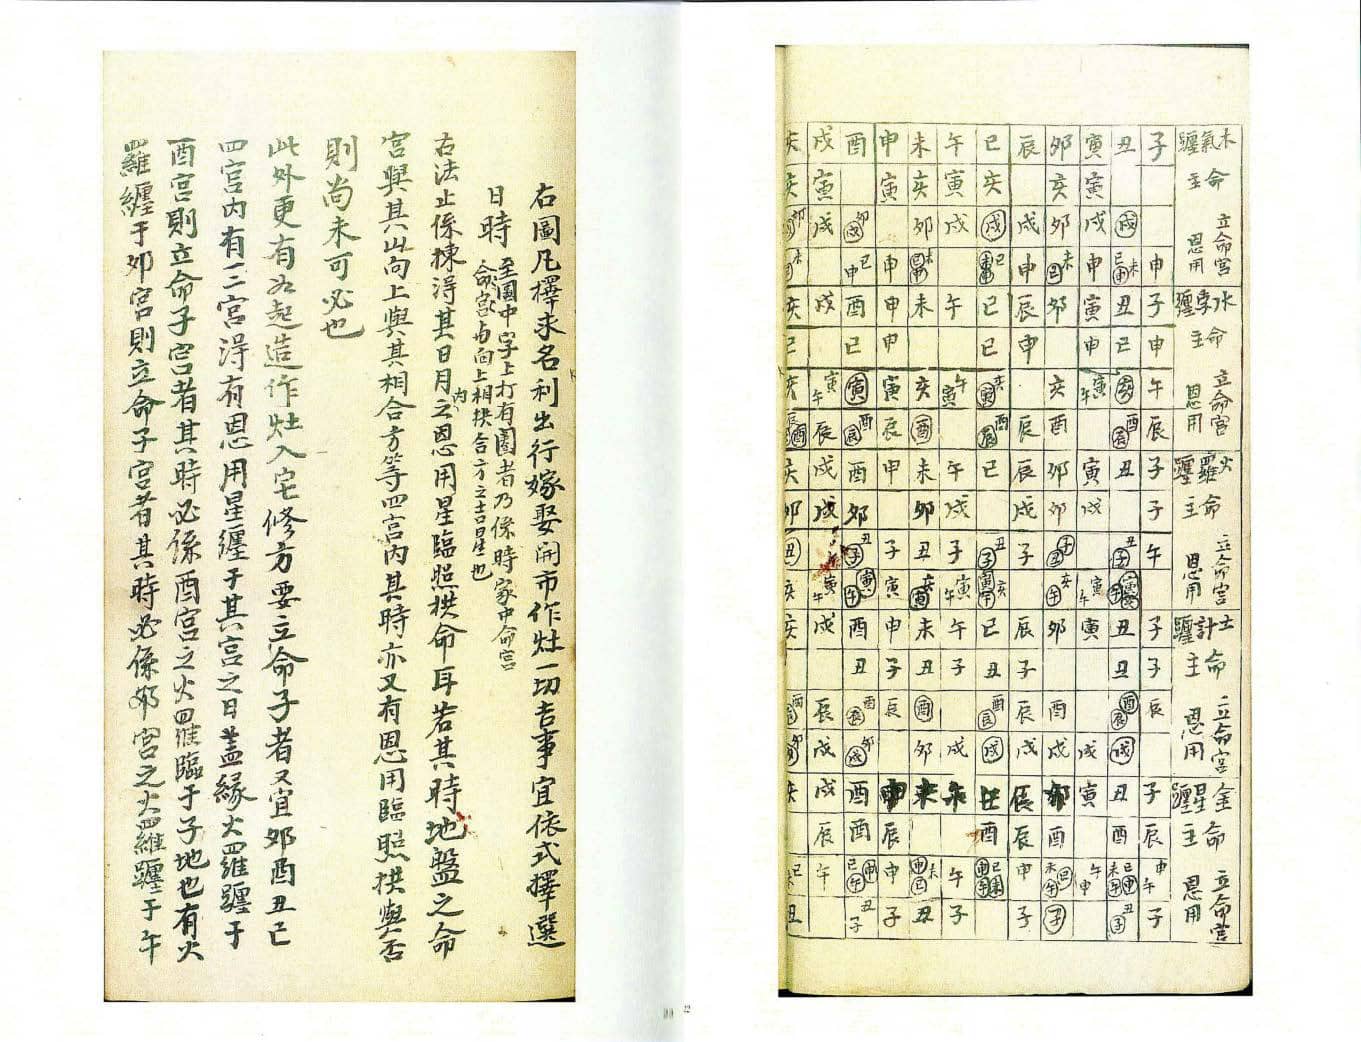 木氣躔
命主
立命宮
恩用
水孛躔
命主
立命宮
恩用
火羅躔
命主
立命宮
恩用
土計躔
命主
立命宮
恩用
金星躔
命主
立命宮
恩用
子申子申午辰子子午子子辰子辰申午子
丑戌未巳申丑巳亥酉辰丑丑子寅午亥丑丑酉辰戌丑酉巳申未午丑子
寅寅戌申寅申寅午寅戌寅午寅戌寅午申
卯亥卯未巳卯亥酉卯卯子丑亥午卯酉戌卯酉未巳午子
辰戌申辰申辰辰戌子辰子辰戌辰辰申子
巳亥戌巳巳巳亥寅酉辰巳丑子寅午巳丑酉辰戌巳酉
午寅戌午午寅午戌子寅午午子戌午午子
未亥卯未未亥酉未卯丑亥寅未丑酉卯未申未巳丑
申寅申申寅辰申子寅申子辰申辰申子
酉卯戌巳申酉巳寅酉辰酉卯丑子寅午酉丑酉辰卯戌酉酉巳申午丑子
戌寅戌戌寅午辰戌戌寅午戌辰戌戌辰午
右圖凡擇求名利出行嫁娶開市作灶一切吉事宜依式擇選
日時
至圖中字上打有圈者乃係時家中命宮
命宮與向上相拱合方之吉星也
右法止係揀得其日月之恩用星臨照拱命耳若其時地盤之命
宮內與其山向上與其相合方等四宮內其時亦又有恩用臨照拱與否
則尚未可必也
此外更有如起造作灶入宅修方要立命子者又宜卯酉丑巳
四宮內有一二宮得有恩用星纏于其宮之日蓋緣火羅纏于
酉宮則立命子宮者其時必係酉宮之火羅臨于子地也有火
羅纏于卯宮則立命子宮者其時必係卯宮之火羅躔于午